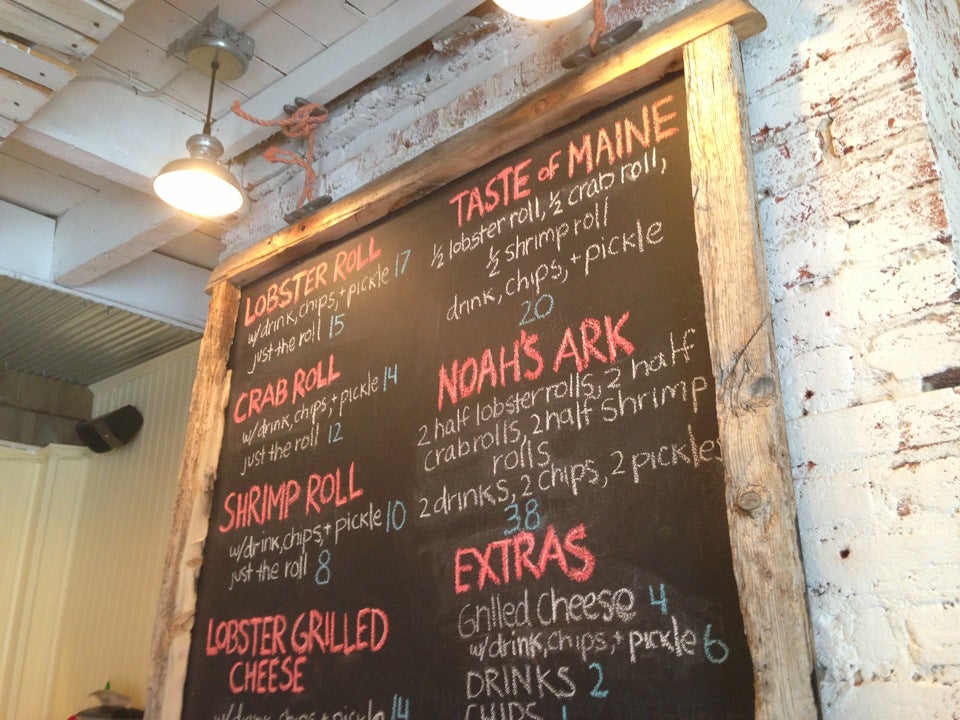 LOBSTER ROLL
w/drink, chips, + pickle 17
just the roll 15
CRAB ROLL
w/drink, chips, + pickle 14
just the roll 12
SHRIMP ROLL
w/drink, chips, + pickle 10
just the roll 8
LOBSTER GRILLED
CHEESE
w/drink, chips + pickle 14
TASTE of MAINE
½ lobster roll, ½ crab roll,
½ shrimp roll
drink, chips, + pickle
20
NOAH'S ARK
2 half lobster rolls, 2 half
crab rolls, 2 half shrimp
rolls
2 drinks, 2 chips, 2 pickles
38
EXTRAS
Grilled Cheese 4
w/drink, chips, + pickle 6
DRINKS 2
CHIPS 1